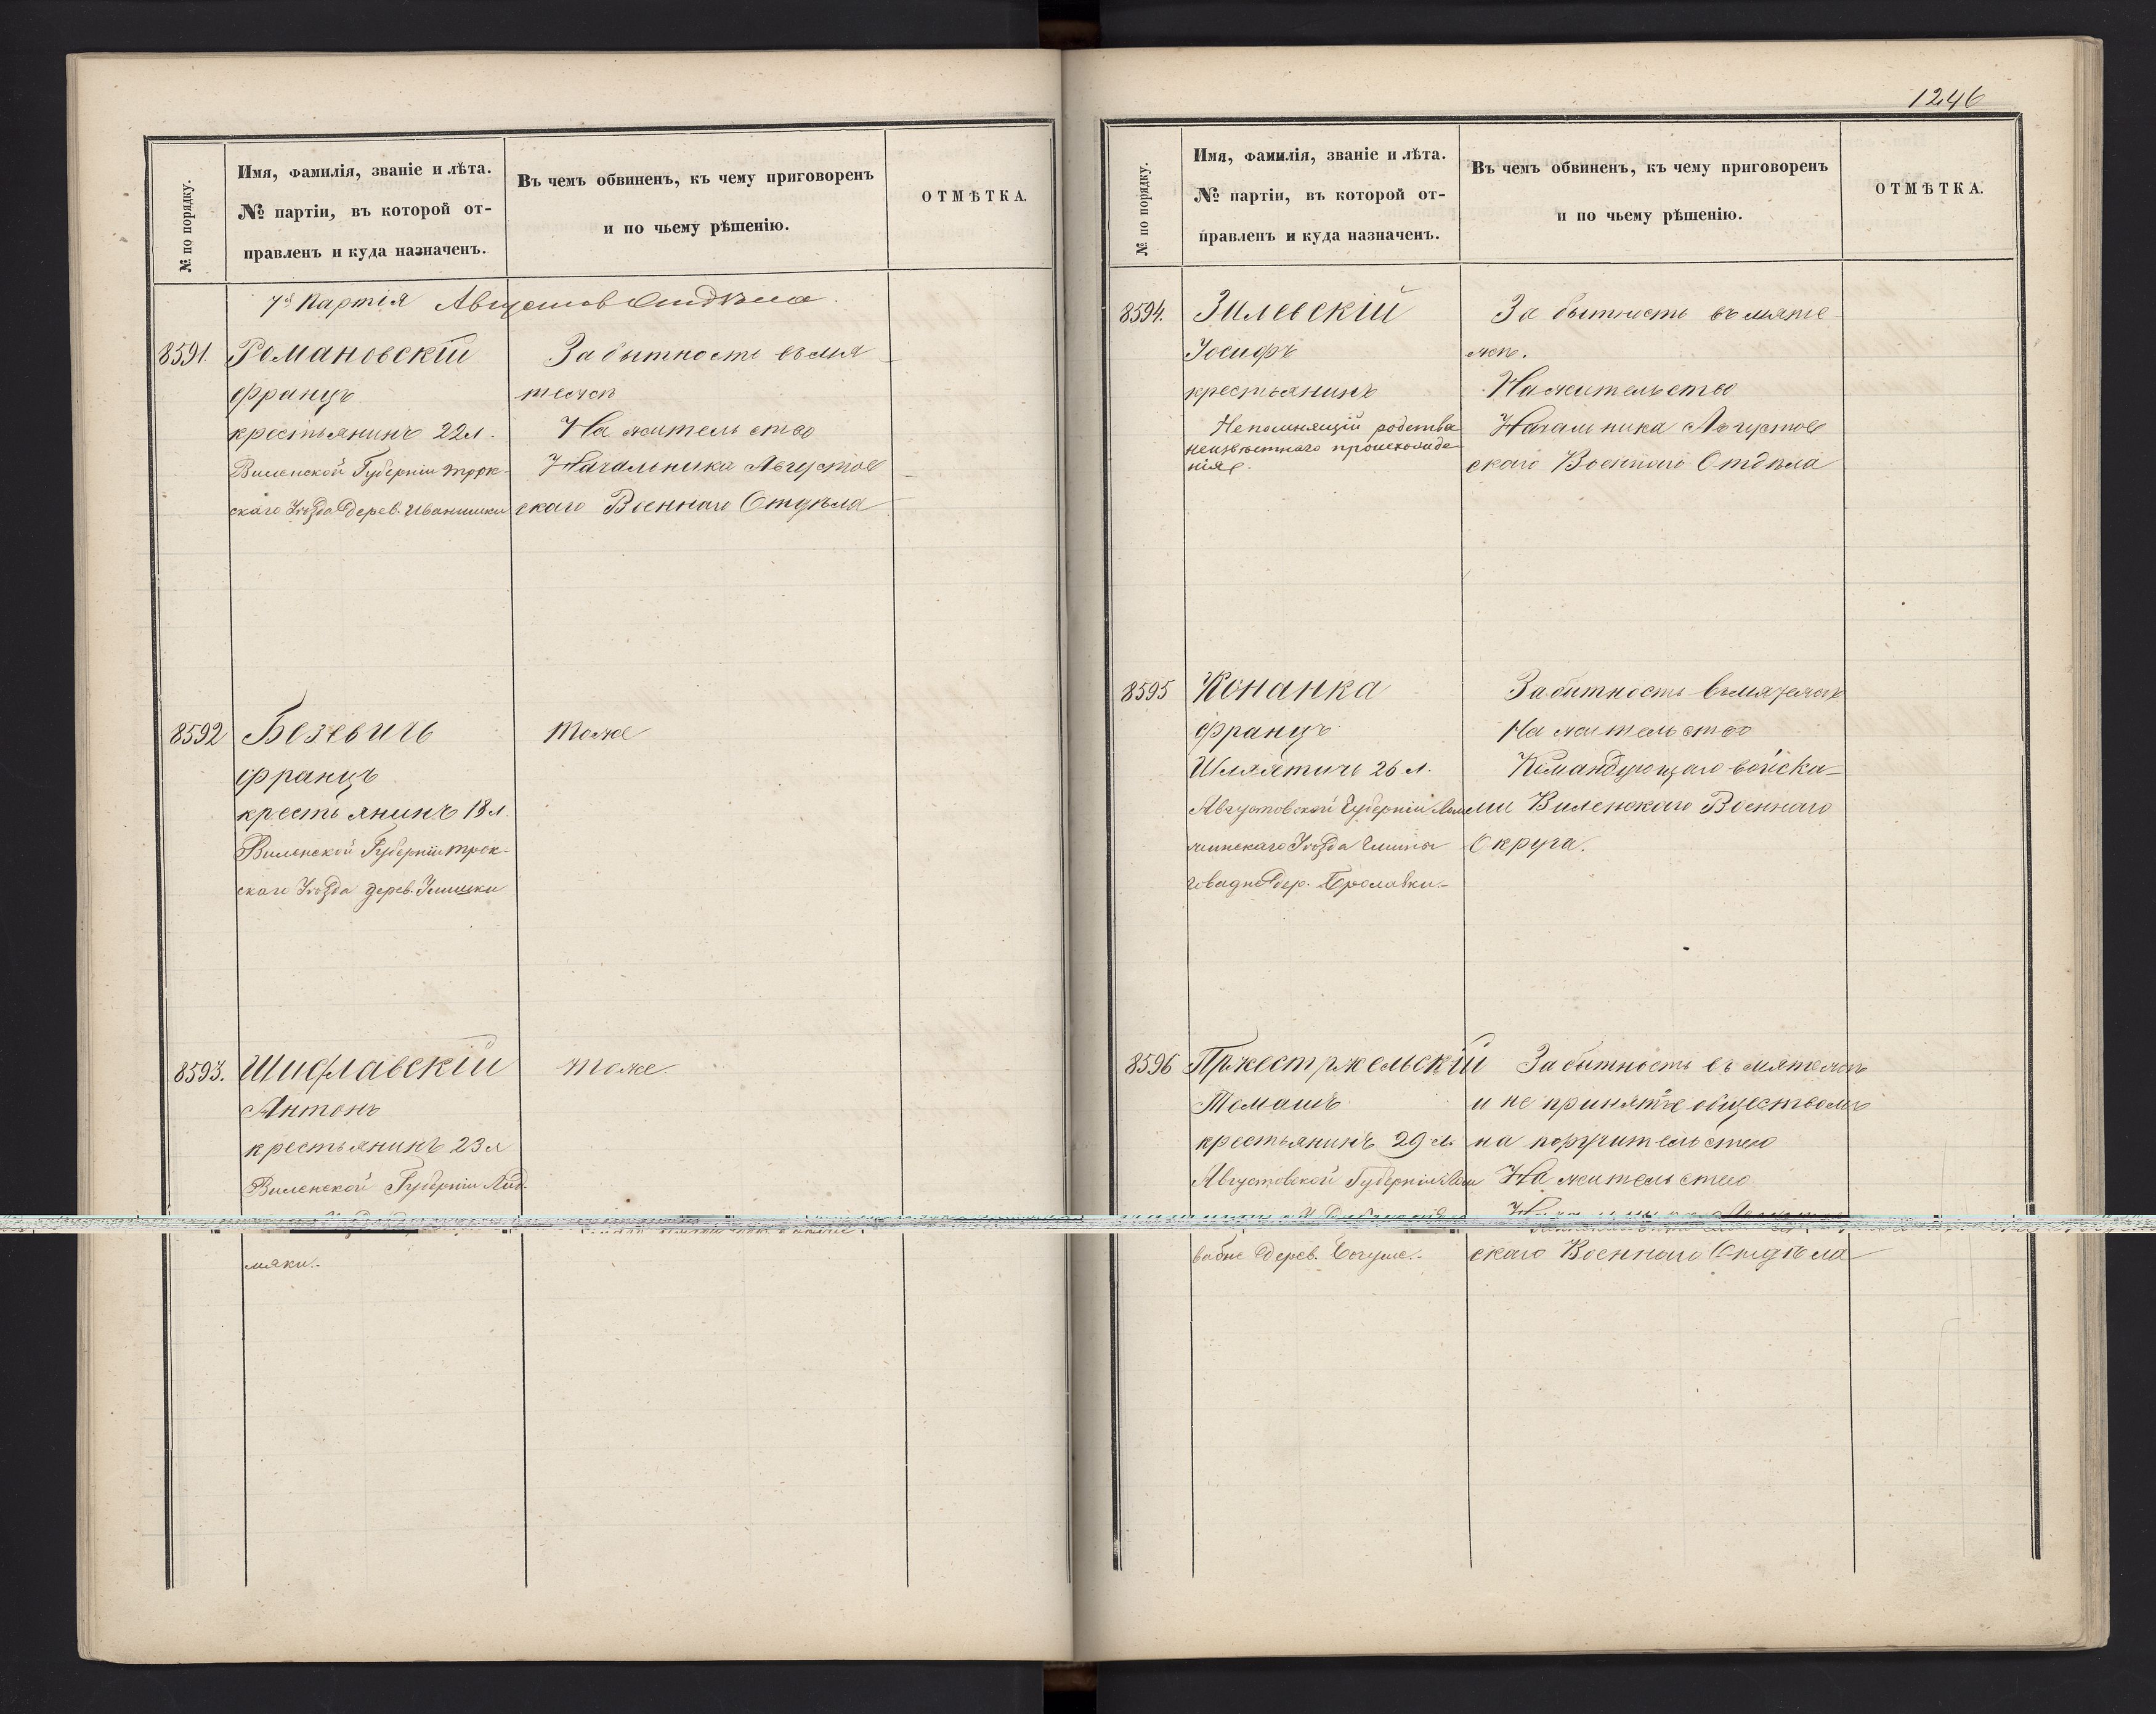 № по порядку.
Имя, фамилія, званіе и лѣта.
№ партіи, въ которой от-
правленъ и куда назначенъ.
Въ чемъ обвиненъ, къ чему приговоренъ
и по чьему рѣшенію.
ОТМѢТКА.
7я Партія Августов Отдѣла.
8591. Романовскій
Францъ
крестьянинъ 22 л.
Виленской Губерніи Трок-
скаго Уѣзда дерев. Иванишки
За бытность въ мя
тежѣ
На жительство
Начальника Августов
скаго Военнаго Отдѣла
8592 Безевичъ
Францъ
крестьянинъ 18 л.
Виленской Губерніи Трок-
скаго Уѣзда дерев.
тоже
8593. Шифлавскій
Антонъ
крестьянинъ 23 л
Виленской Губерніи Лид.
мяки.
тоже.
1246
№ по порядку.
Имя, фамилія, званіе и лѣта.
№ партіи, въ которой от-
правленъ и куда назначенъ.
Въ чемъ обвиненъ, къ чему приговоренъ
и по чьему рѣшенію.
ОТМѢТКА.
8594. Зилевскій
Іосифъ
крестьянинъ
Непомнящій родства
неизвѣстнаго происхожде
нія.
За бытность въ мяте
жѣ.
На жительство
Начальника Августов
скаго Военнаго Отдѣла
8595 Конанка
Францъ
Шляхтичъ 26 л.
Августовской Губерніи Лом
жинскаго Уѣзда Гмины
дер.
За бытность въ мятежѣ
На жительство
Командующаго войска-
ми Виленскаго Военнаго
Округа.
8596 Пржестржельскій
Томашъ
крестьянинъ 29 л.
Августовской Губерніи Лом
дерев. Богуше.
За бытность въ мятежѣ
и не принятіе обществомъ
на поручительство
На жительство
скаго Военнаго Отдѣла